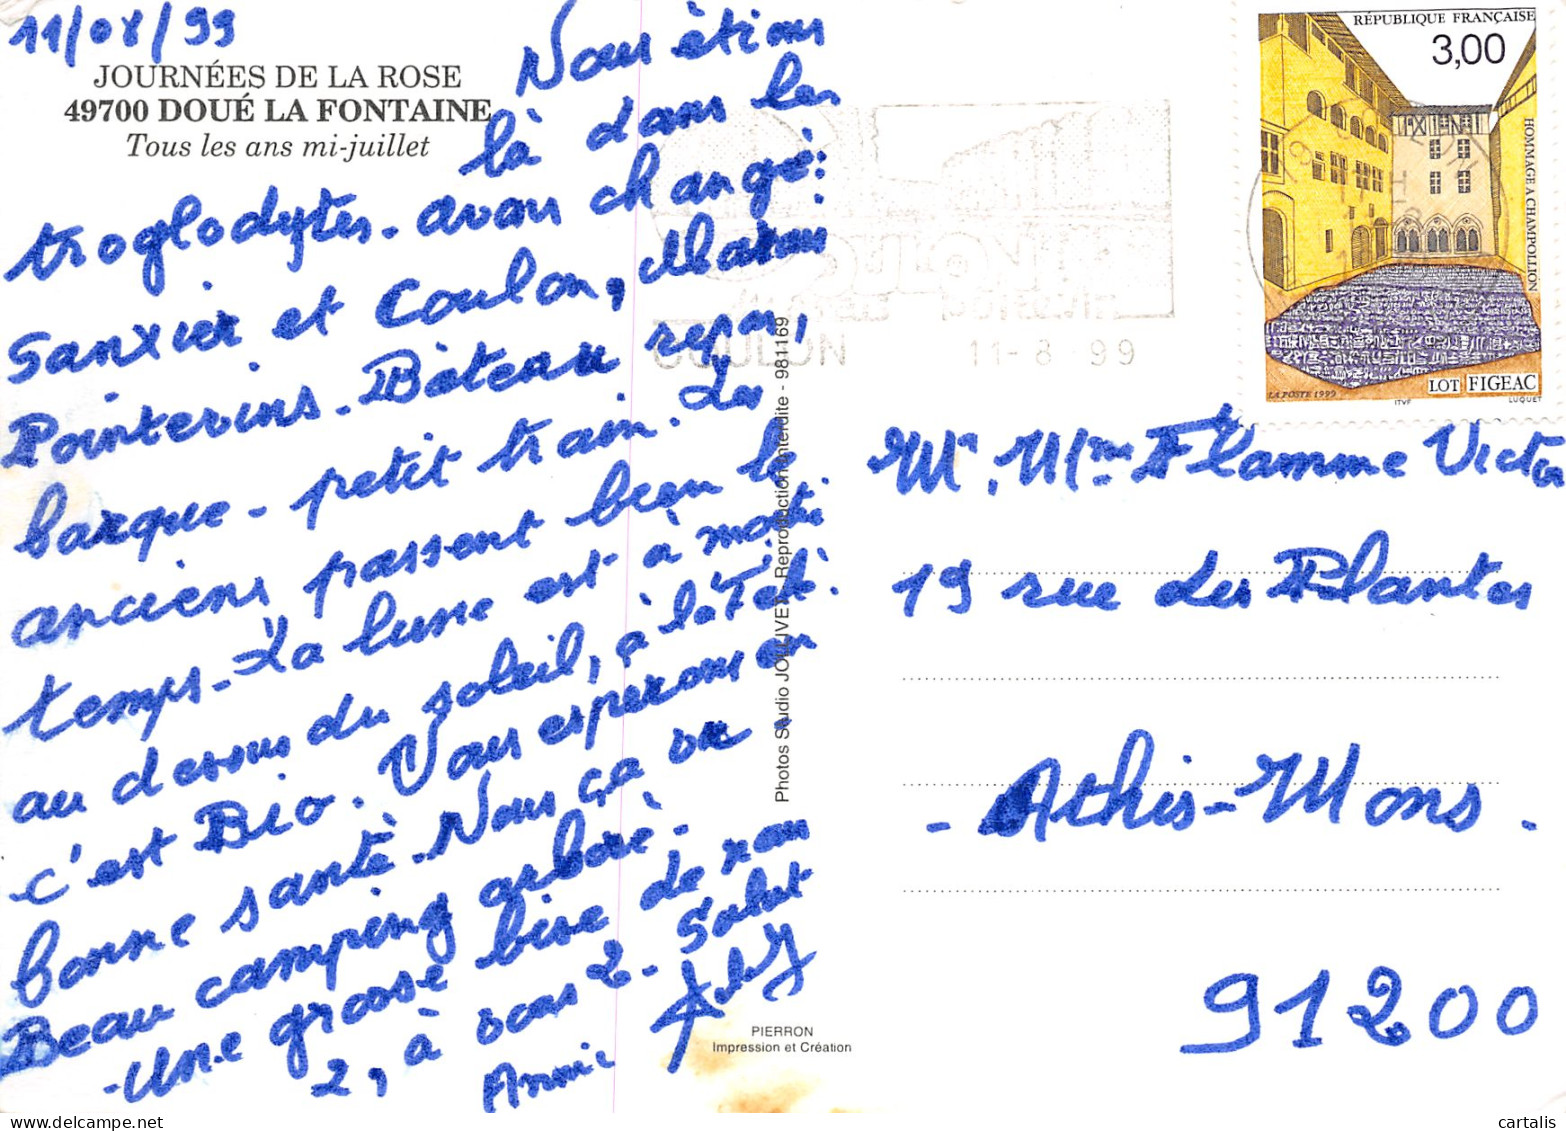 11/08/99
JOURNÉES DE LA ROSE
49700 DOUÉ LA FONTAINE
Tous les ans mi-juillet
Nous étions
là dans les
troglodytes. avons changé:
Sanxier et Coulon, Marais
Pointevins. Bateau repas,
barque - petit train. Les
anciens passent bien le
temps. La lune est à moitié
au dessus du soleil, à la Télé.
c'est Bio. Vous espérons en
bonne santé. Nous ça va
Beau camping arboré.
- Une grosse bise de nous
2, à vous 2. Salut
Annie
Photos Studio JOLLIVET Reproduction interdite - 981169
PIERRON
Impression et Création
COULON
11-8 99
RÉPUBLIQUE FRANÇAISE
3,00
HOMMAGE A CHAMPOLLION
LOT FIGEAC
LA POSTE 1999
ITVF
LUQUET
Mr. Mme Flamme Victor
19 rue des Plantes
- Athis-Mons.
91200
cartalis